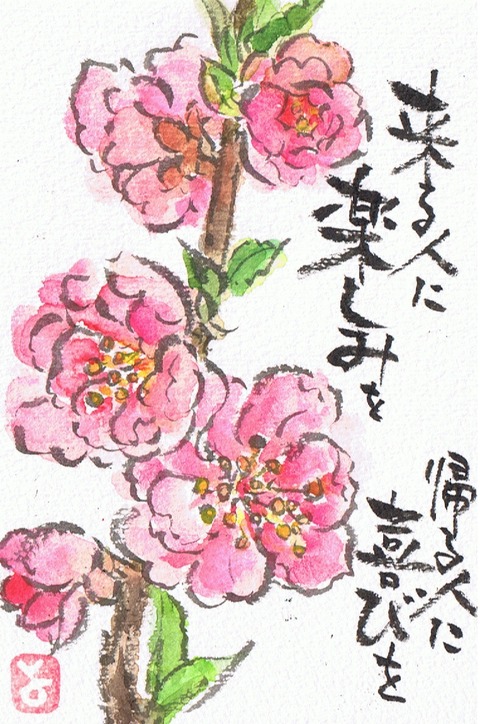 来る人に
楽しみを
帰る人に
喜びを